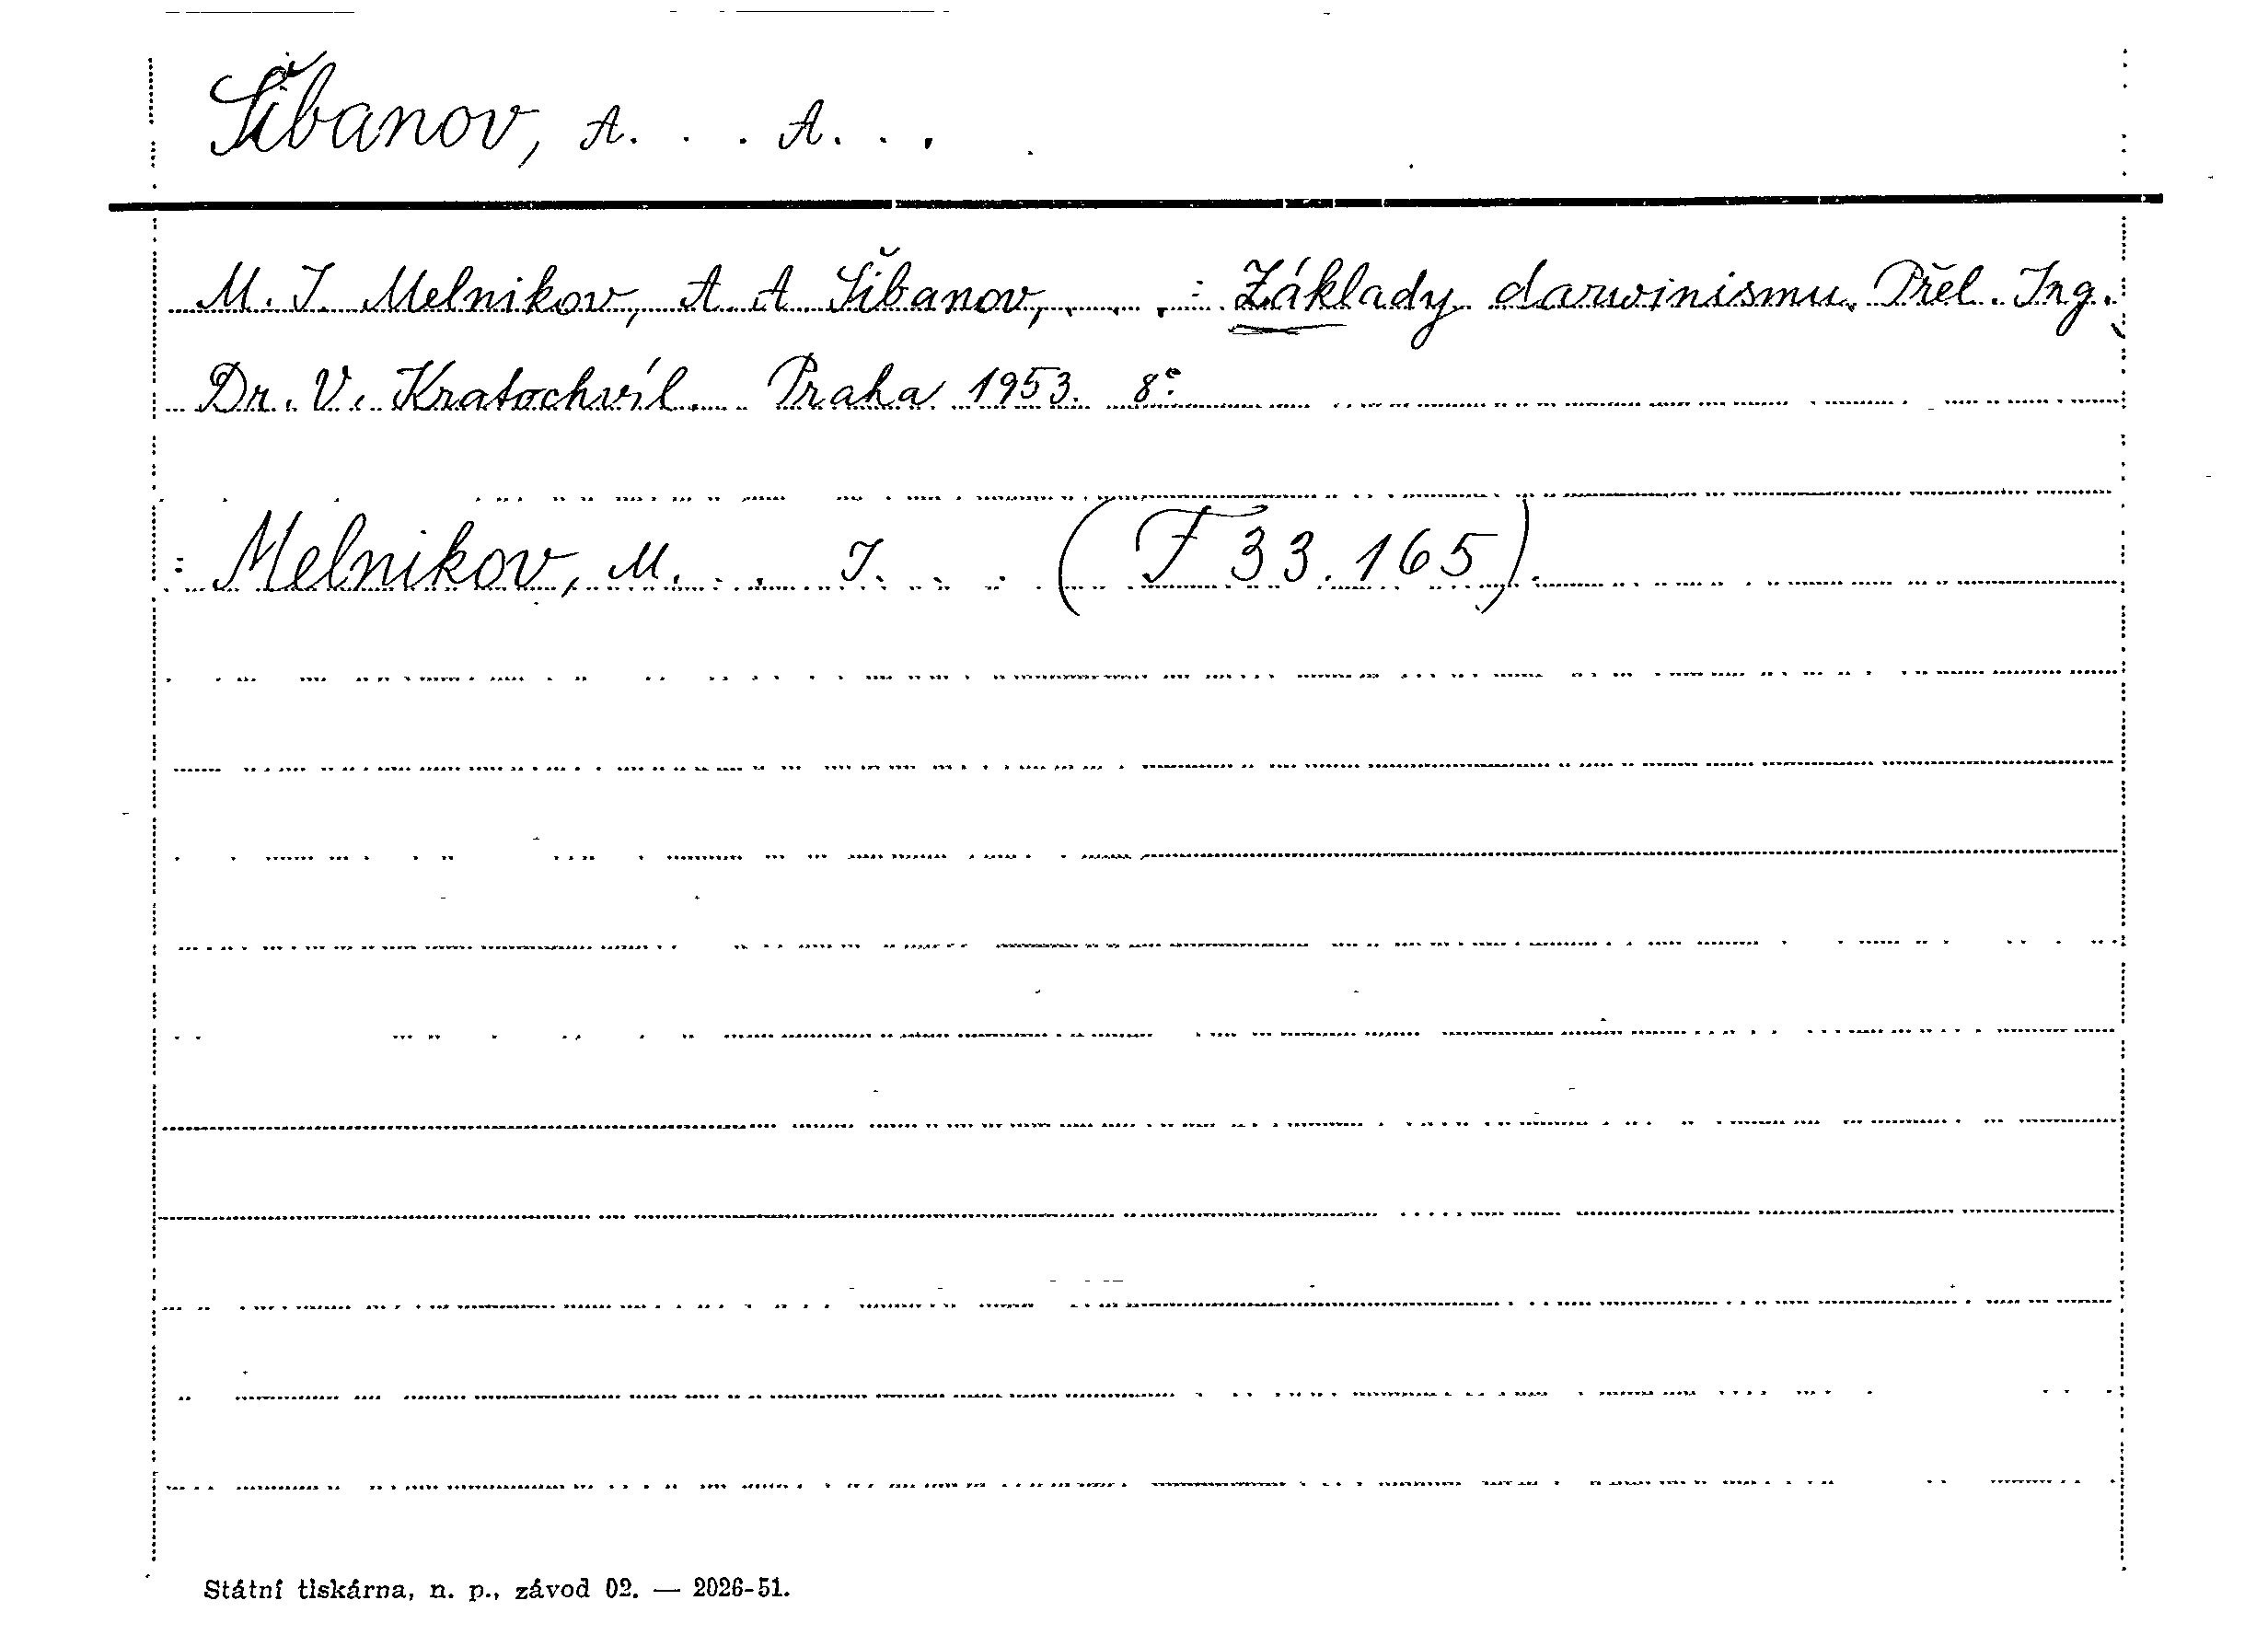 Šibanov, A. . . A. . .
M. I. Melnikov, A. A. Šibanov, . . . , : Základy darwinismu. Přel. Ing.
Dr. V. Kratochvíl. Praha 1953. 8°.
: Melnikov, M. . . I. . . (F 33.165).
Státní tiskárna, n. p., závod 02. — 2026-51.